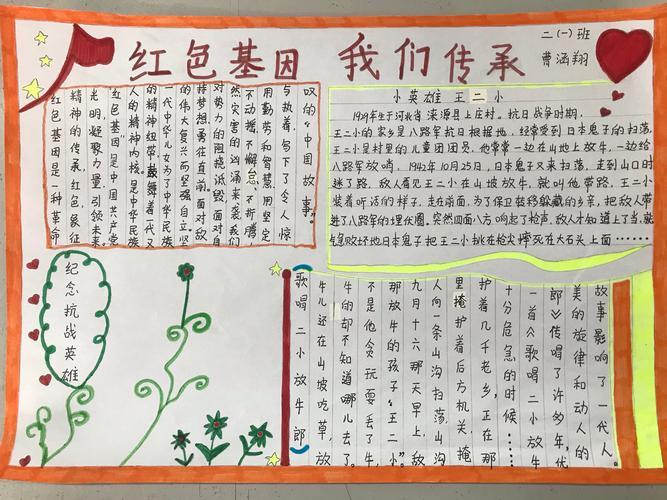 红色基因 我们传承
二(一)班
曹涵翔
红色基因是一种革命
精神的传承,红色象征
光明,凝聚力量,引领未来。
红色基因是中国共产党
人的精神内核,是中华民族
的精神纽带,鼓舞着一代又
一代中华儿女为了中华民族
的伟大复兴而坚强自立,坚
持梦想勇往直前,面对敌
对势力的阻挠诋毁,面对自
然灾害的凶涌来袭,我们
不动摇,不懈怠,不折腾,
用勤劳和智慧,用坚定
与执着,写下了令人惊
叹的“中国故事”。
小英雄 王二小
1929年生于河北省涞源县上庄村。抗日战争时期,
王二小的家乡是八路军抗日根据地,经常受到日本鬼子的扫荡,
王二小是村里的儿童团团员,他常常一边在山上放牛,一边给
八路军放哨,1942年10月25日,日本鬼子又来扫荡,走到山口时
迷了路,敌人看见王二小在山坡放牛,就叫他带路,王二小
装着听话的样子,走在前面,为了保卫转移躲藏的乡亲,把敌人带
进了八路军的埋伏圈。突然四面八方响起了枪声,敌人才知道上了当,就
气急败坏地日本鬼子把王二小挑在枪尖摔死在大石头上面……
纪念抗战英雄
歌唱二小放牛郎
牛儿还在山坡吃草,放
牛的却不知道哪儿去了。
不是他贪玩耍丢了牛,
那放牛的孩子王二小。
九月十六那天早上,敌
人向一条山沟扫荡,山沟
里掩护着后方机关,掩
护着几千老乡,正在那
十分危急的时候……
一首《歌唱二小放牛
郎》传唱了许多年,优
美的旋律和动人的
故事影响了一代人。